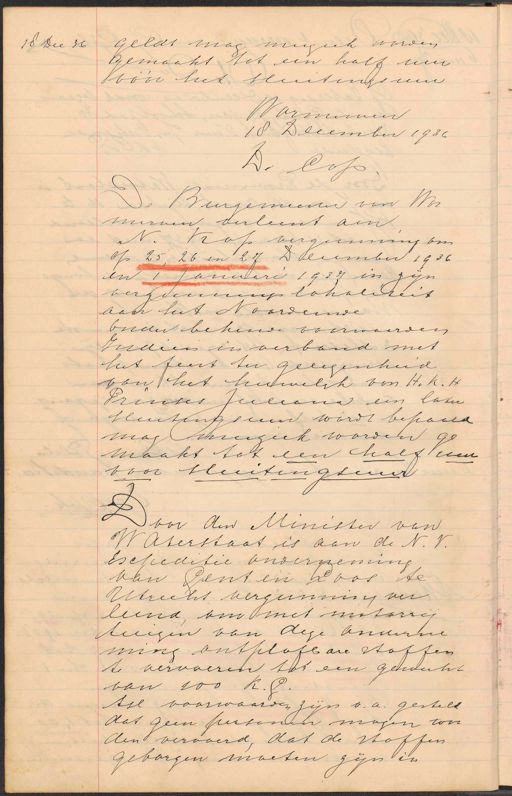 18 Dec 36 geldt mag muziek worden
gemaakt tot een half uur
vóór het sluitingsuur
Wormerveer
18 December 1936
D. Cop.
De Burgemeester van Wor
merveer verleent aan
N. Krop vergunning om
op 25, 26 en 27 December 1936
en 1 Januari 1937 in zijn
vergunningslokaliteit
aan het Noordeinde
onder bekende voorwaarden
Indien in verband met
het feest ter gelegenheid
van het huwelijk van H.K.H
Prinses Juliana een later
sluitingsuur wordt bepaald
mag muziek worden ge
maakt tot een half uur
voor sluitingsuur
Door den Minister van
Waterstaat is aan de N.V.
Expeditie onderneming
van Gent en Loos te
Utrecht vergunning ver
leend, om met motorrij
tuigen van deze onderne
ming ontplofbare stoffen
te vervoeren tot een gewicht
van 100 K.G.
Als voorwaarden zijn o.a. gesteld
dat geen personen mogen wor
den vervoerd, dat de stoffen
geborgen moeten zijn in